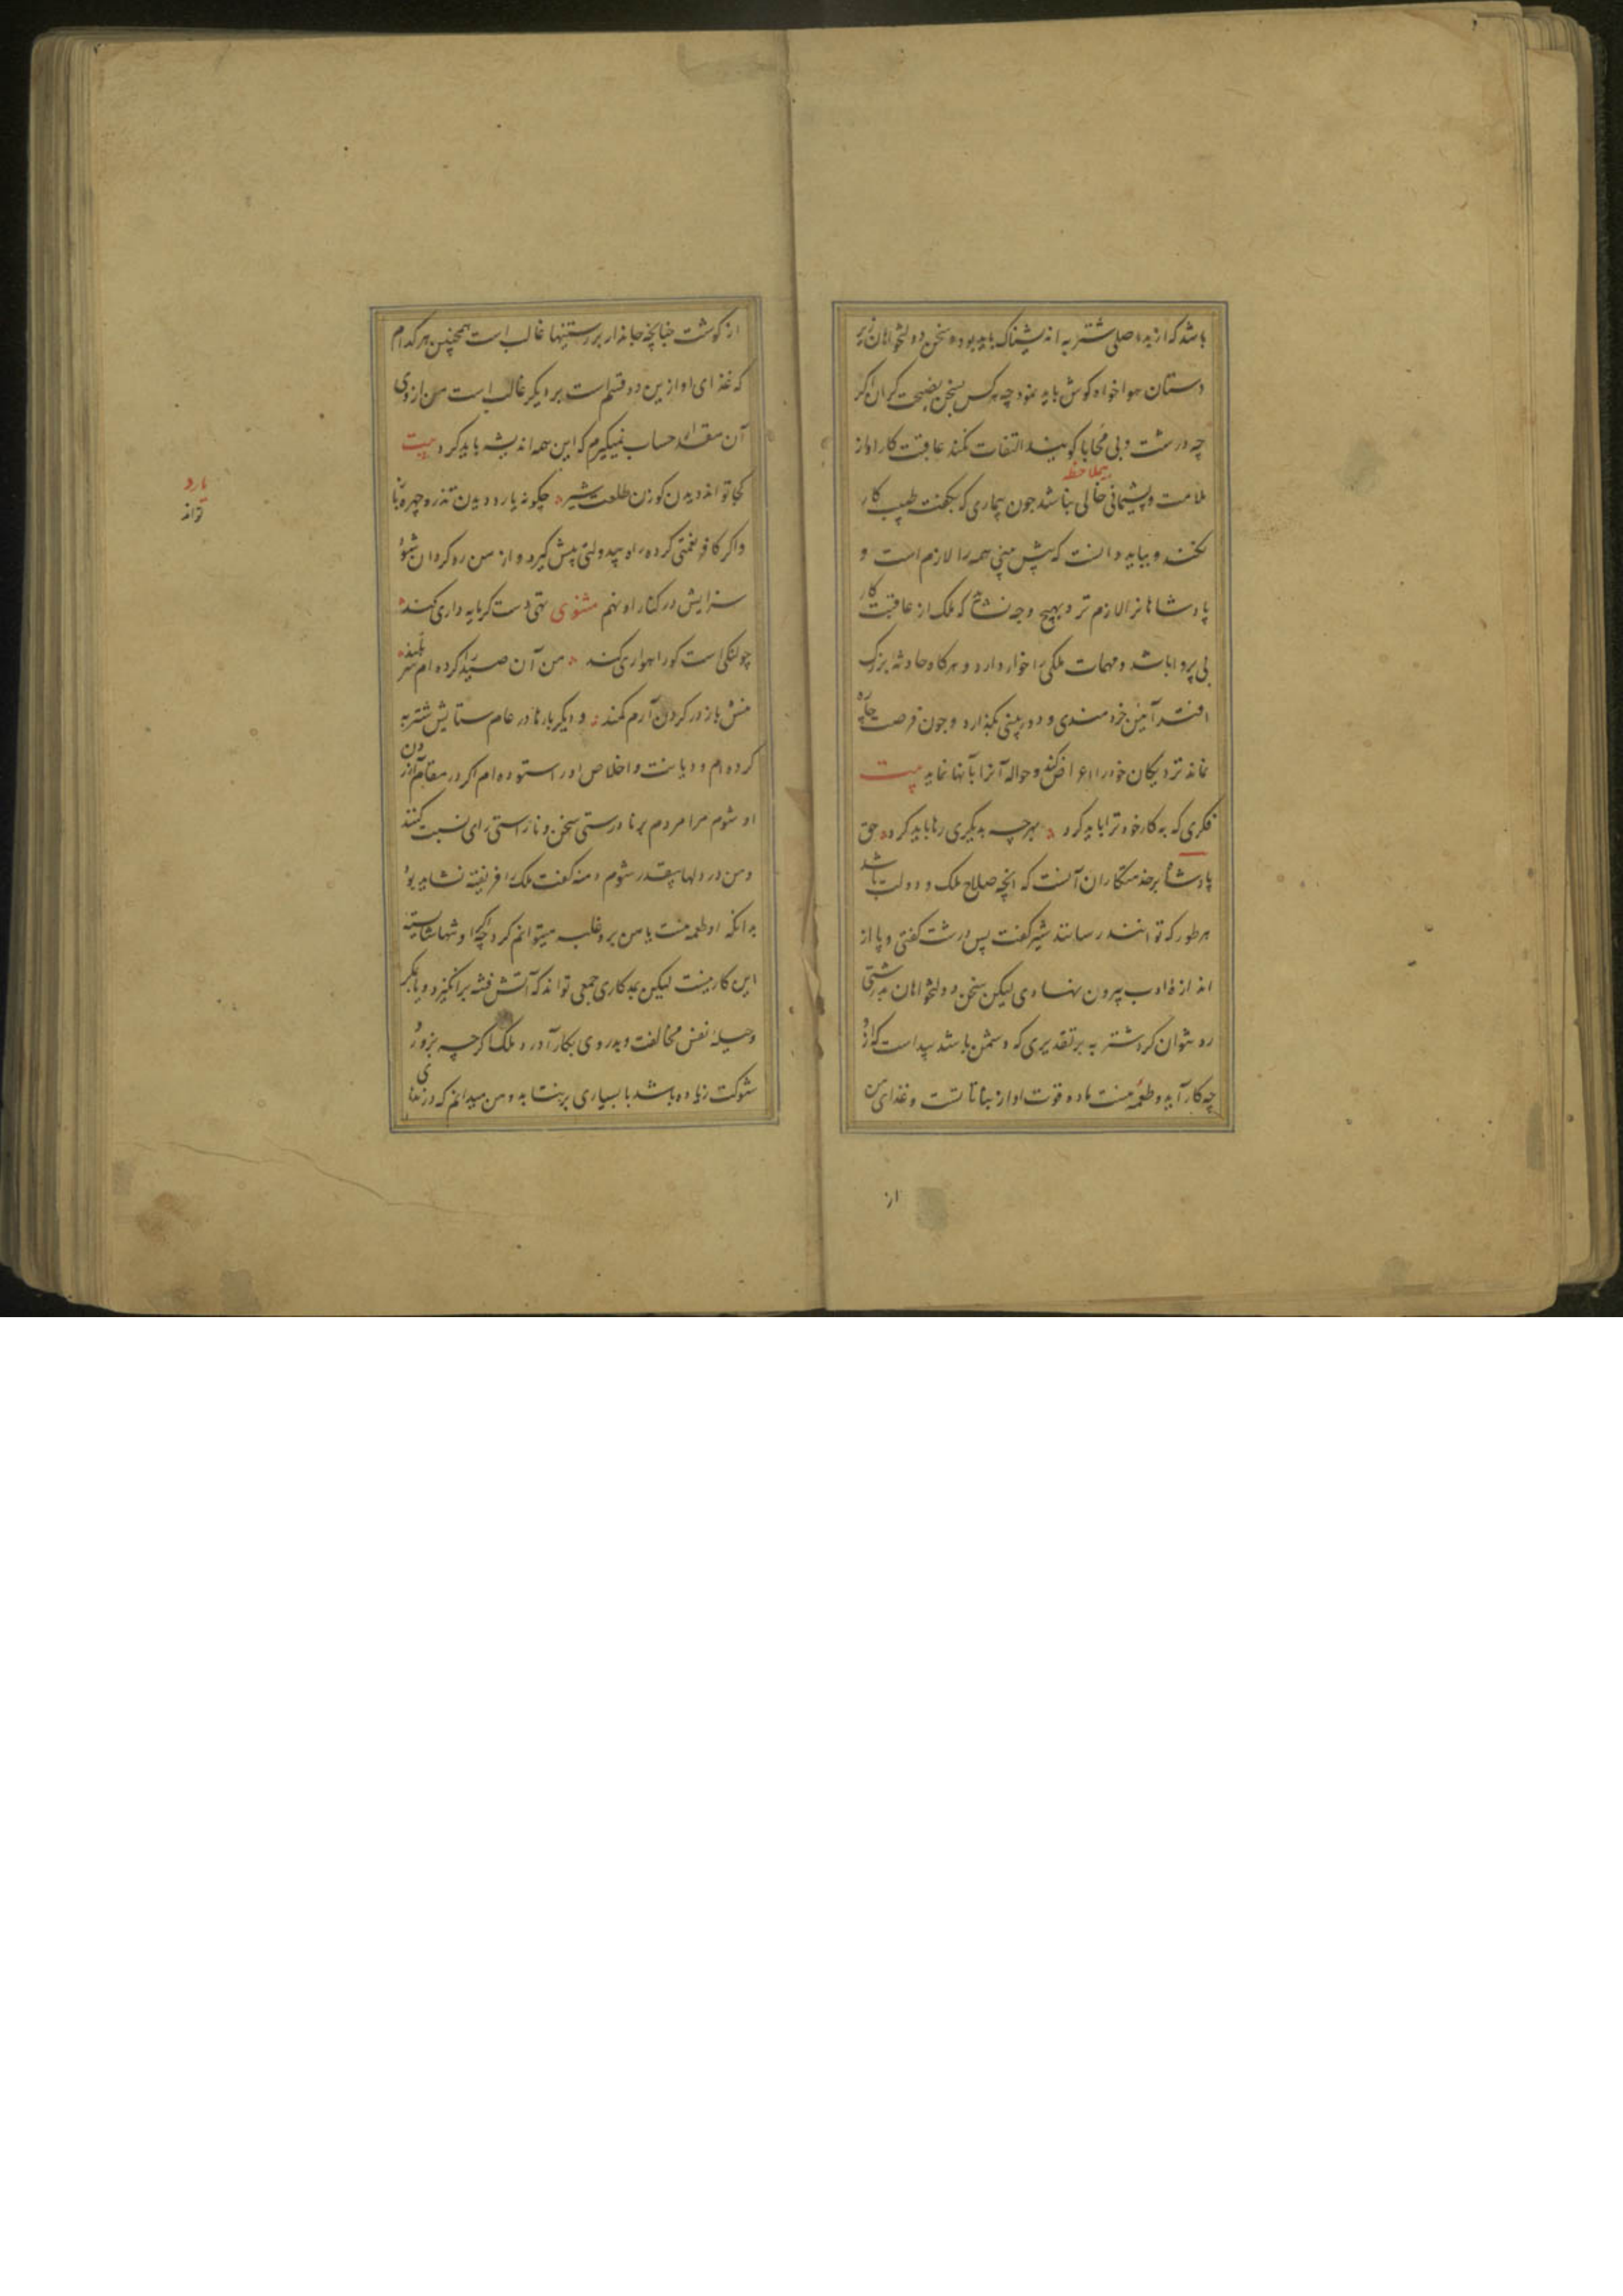 باشد که از بد اصلی شتربه اندیشناک باید بود و سخن دولتخواهان زیر
دستان هواخواه کوش باید نمود چه هر کس بسخن نصیحت کران اکر
چه درشت و بی محابا کویند التفات نکند عاقبت کار او از
بیملاحظه
ملامت و پشیمانی خالی نباشد چون بیماری که بکفت طبیب کار
نکند و بباید دانست که پیش بینی همه را لازم است و
پادشاهانرا لازم تر و بهیچ وجه نشاید که ملک از عاقبت کار
بی پروا باشد و مهمات ملکی را خوار دارد و هرکاه حادثه بزرک
افتد آیین خردمندی و دوربینی بگذارد و چون فرصت چاره
نماند نزدیکان خود را اعراض کند و حواله آنرا بآنها نماید بیت
فکری که به کار خود ترا باید کرد بهر چه بدیکری رها باید کرد حق
پادشاه بر خدمتکاران آنست که انچه صلاح ملک و دولت باشد
هر طور که توانند رسانند شیر کفت بس درشت کفتی و پا از
اندازه ادب بیرون نهادی لیکن سخن دولتخواهان بدرشتی
رد نتوان کرد شتربه بر تقدیری که دشمن باشد پیداست که از او
چه کار آید و طعمه منست ماده قوت او از نباتاتست و غذای من
از
از کوشت چنانچه جاندار بر رستنیها غالب است همچنین هر کدام
که غذای او ازین دو قسم است بر دیکر غالب است من از وی
آن مقدار حساب نمیکیرم که این همه اندیشه باید کرد بیت
کجا تواند دیدن کوزن طلعت شیر چکونه یارد دیدن تذرو چهره باز
یارد
تواند
و اکر کافر نعمتی کرده راه بیدولتی پیش کیرد و از من رو کردان شود
سزایش در کنار او نهم مثنوی تهی دست کر مایه داری کند
چو لنکی است کو راهواری کند من آن صید را کرده ام سر بلند
منش باز در کردن آرم کمند و دیکر بارها در عام ستایش شتربه
کرده ام و دیانت و اخلاص او را ستوده ام اکر در مقام آزردن
او شوم مرا مردم بر نادرستی سخن و ناراستی رای نسبت کنند
و من در دلها بیقدر شوم دمنه کفت ملک را فریفته نشاید بود
بدانکه او طعمه منست با من برد غلبه میتوانم کرد چه اکر او تنها شایسته
این کار نیست لیکن بمددکاری جمعی تواند که آتش فتنه برانگیزد و یا بمکر
و حیله نفس مخالفت و بدروی بکار آورد و ملک اکرچه بزور و
شوکت زیاده باشد با بسیاری برنتابد و من میدانم که درندهای